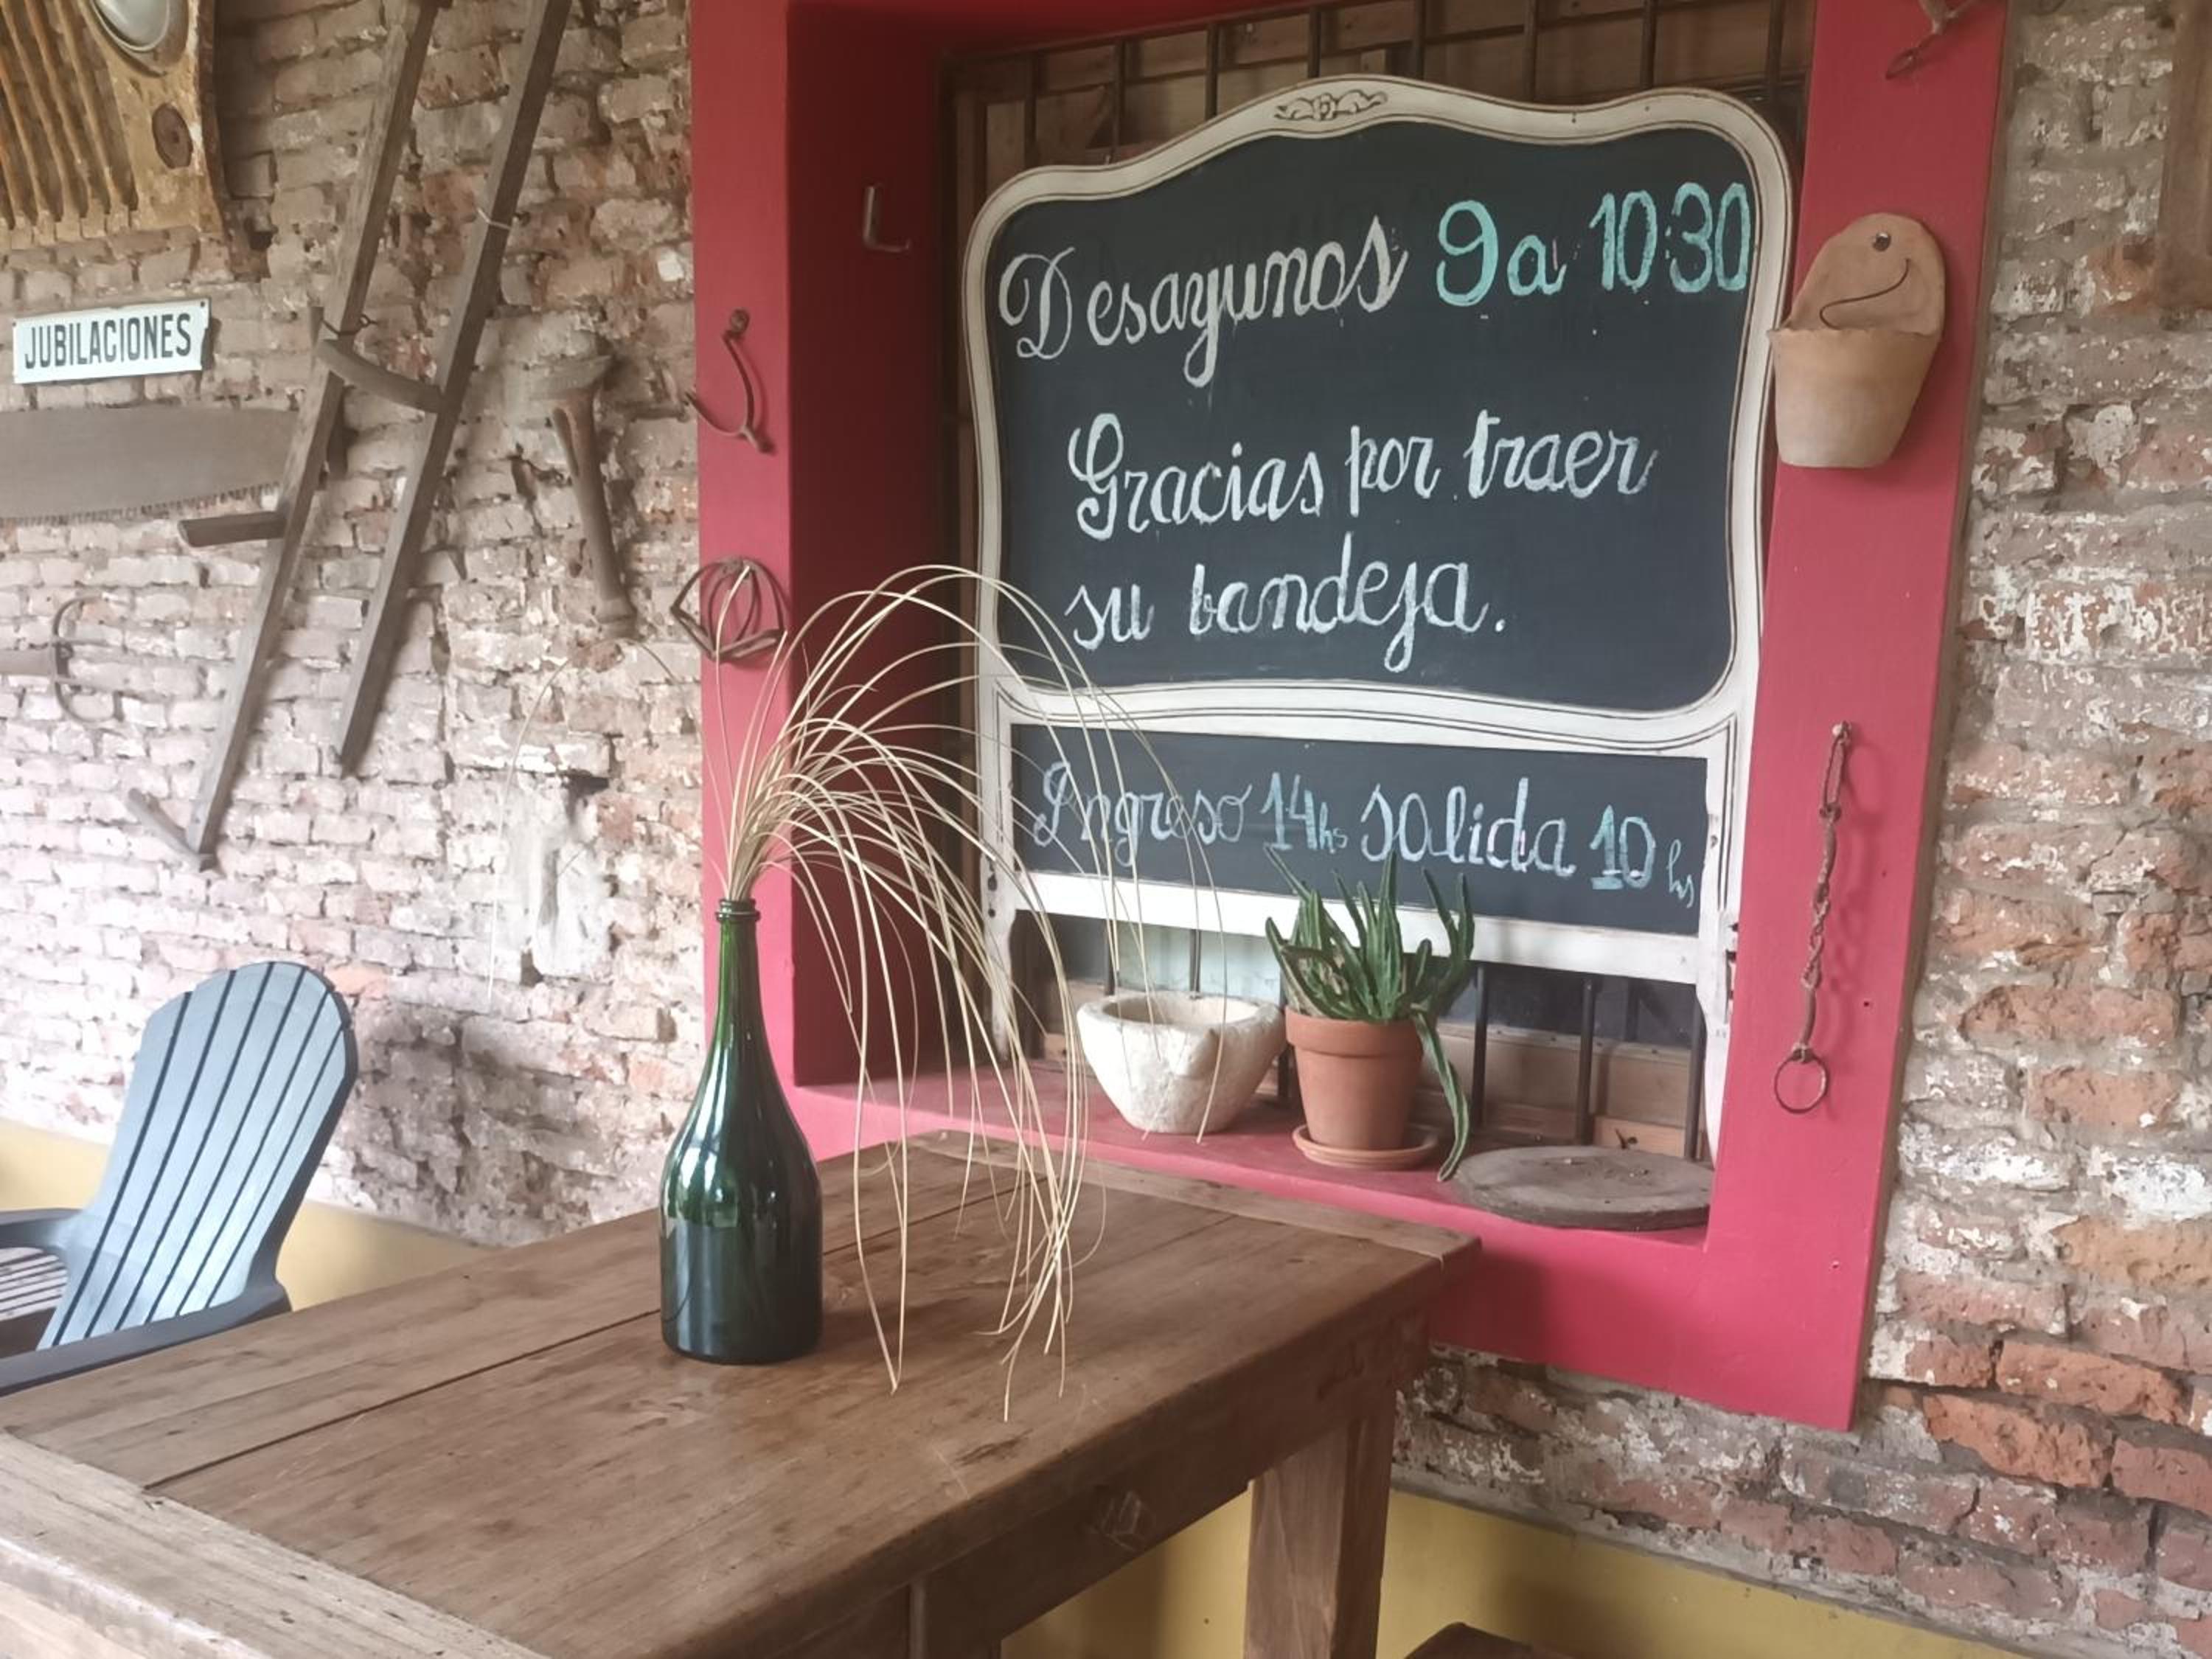 JUBILACIONES
Desayunos 9 a 10:30
Gracias por traer
su bandeja.
Ingreso 14hs salida 10 hs